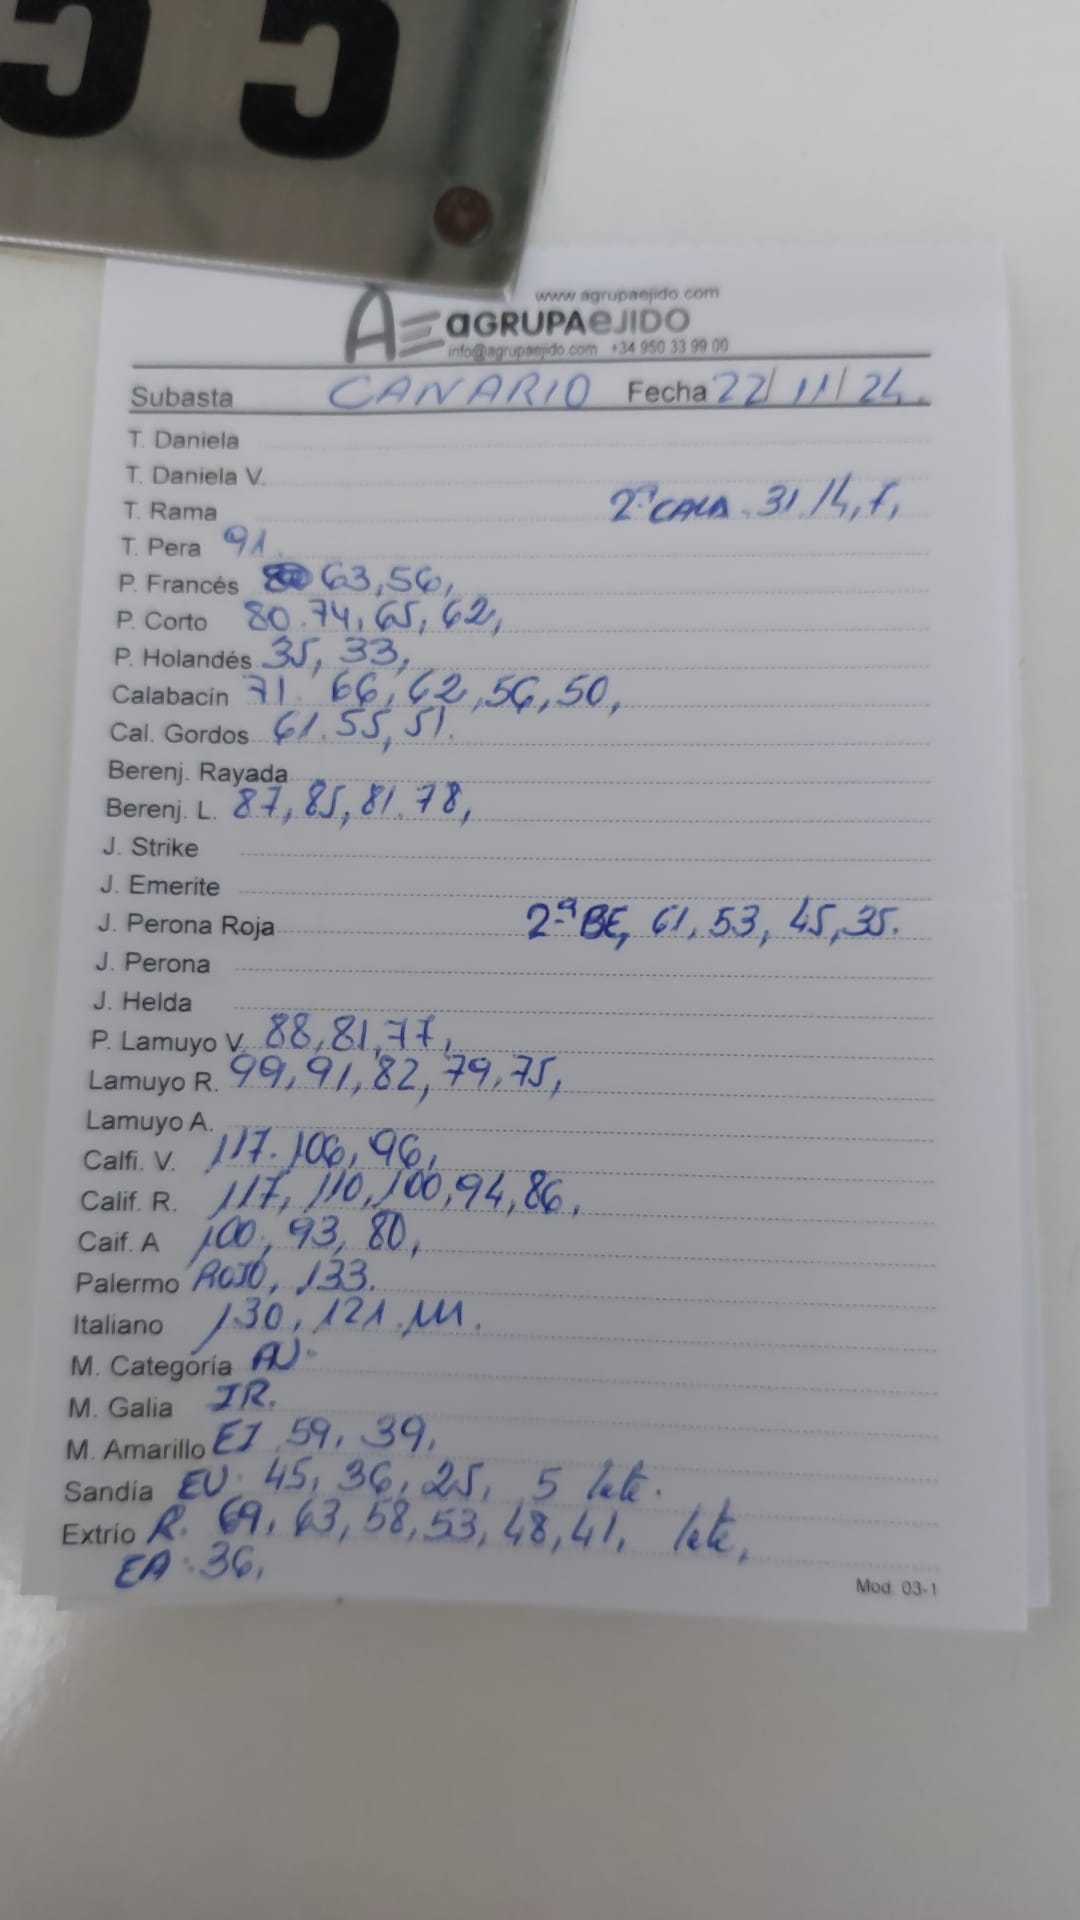 55
www.agrupaejido.com
AE aGRUPAeJIDO
info@agrupaejido.com +34 950 33 99 00
Subasta CANARIO Fecha 22/11/24.
T. Daniela
T. Daniela V.
T. Rama 2ª CALA. 31.14,7,
T. Pera 91.
P. Francés 63,56,
P. Corto 80.74,65,62,
P. Holandés 35,33,
Calabacín 71. 66,62,56,50,
Cal. Gordos 61.55,51.
Berenj. Rayada
Berenj. L. 87,85,81.78,
J. Strike
J. Emerite
J. Perona Roja 2ª BE, 61,53,45,35.
J. Perona
J. Helda
P. Lamuyo V. 88,81,77,
Lamuyo R. 99,91,82,79,75,
Lamuyo A.
Calfi. V. 117.106,96,
Calif. R. 117,110,100,94,86,
Caif. A 100,93,80,
Palermo ROJO, 133.
Italiano 130,121.111.
M. Categoría AV.
M. Galia IR.
M. Amarillo EI 59,39,
Sandía EV. 45,36,25, 5
Extrío R. 69,63,58,53,48,41,
EA.36,
Mod. 03-1